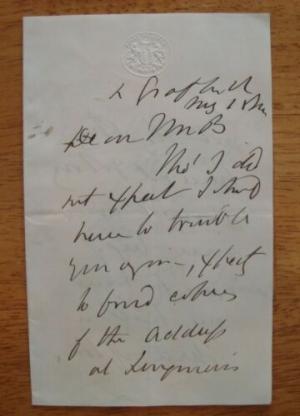 2 Grafton St
May 18
Dear Mr B
Tho' I did
not expect I should
have to trouble
you again, expecting
to find copies
of the address
at Longmans